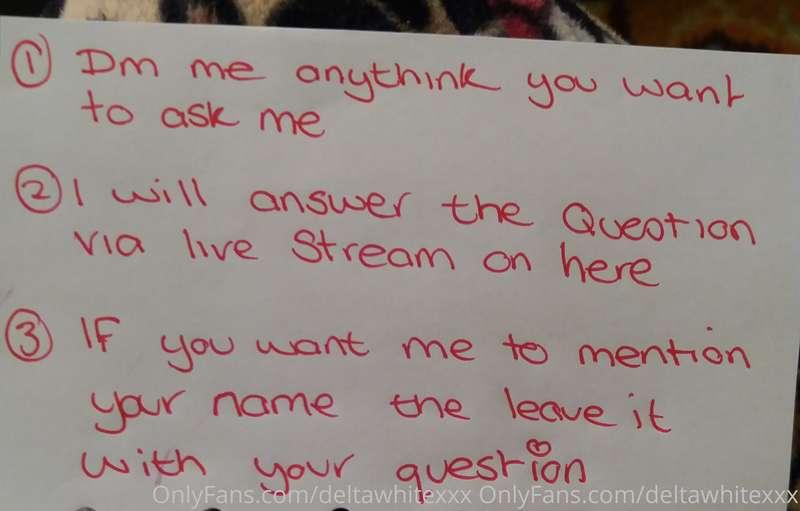 ① Dm me anythink you want
to ask me
② I will answer the Question
via live Stream on here
③ IF you want me to mention
your name the leave it
with your question
OnlyFans.com/deltawhitexxx OnlyFans.com/deltawhitexxx